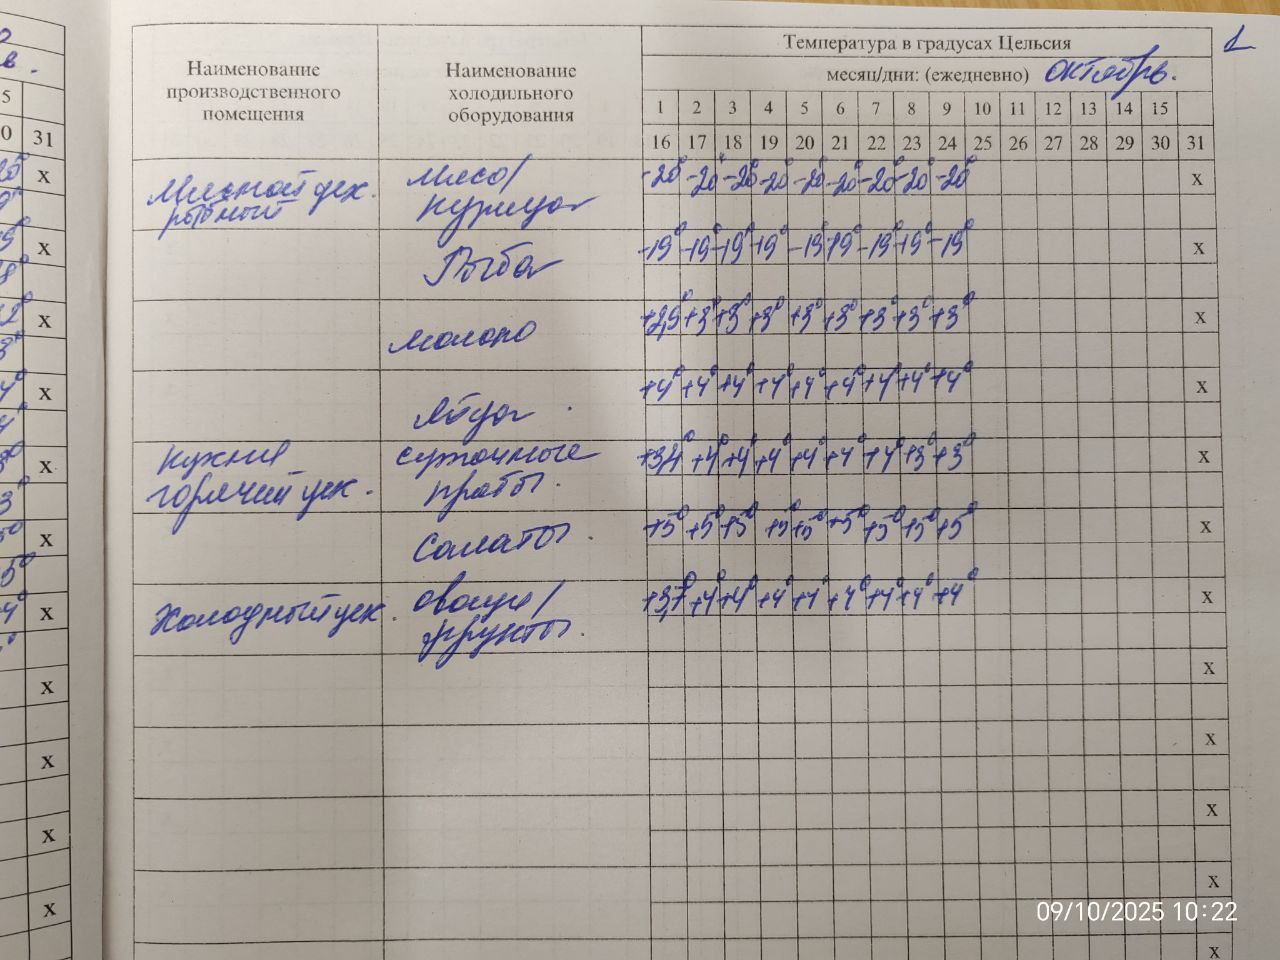 Температура в градусах Цельсия
1
Наименование производственного помещения
Наименование холодильного оборудования
месяц/дни: (ежедневно) октябрь.
1 2 3 4 5 6 7 8 9 10 11 12 13 14 15
16 17 18 19 20 21 22 23 24 25 26 27 28 29 30 31
5
0 31
Мясной цех. рыбный
Мясо/ курица
-20° -20° -20° -20° -20° -20° -20° -20° -20° х
Рыба
-19° -19° -19° -19° -19° -19° -19° -19° -19° х
молоко
+2,9° +3° +3° +3° +3° +3° +3° +3° +3° х
Яйцо
+4° +4° +4° +4° +4° +4° +4° +4° +4° х
Кухня горячий цех.
суточные пробы.
+3,4° +4° +4° +4° +4° +4° +4° +3° +3° х
Салаты.
+5° +5° +5° +5° +5° +5° +5° +5° +5° х
Холодный цех.
овощи/ фрукты.
+3,7° +4° +4° +4° +4° +4° +4° +4° +4° х
х
х
х
х
х
09/10/2025 10:22